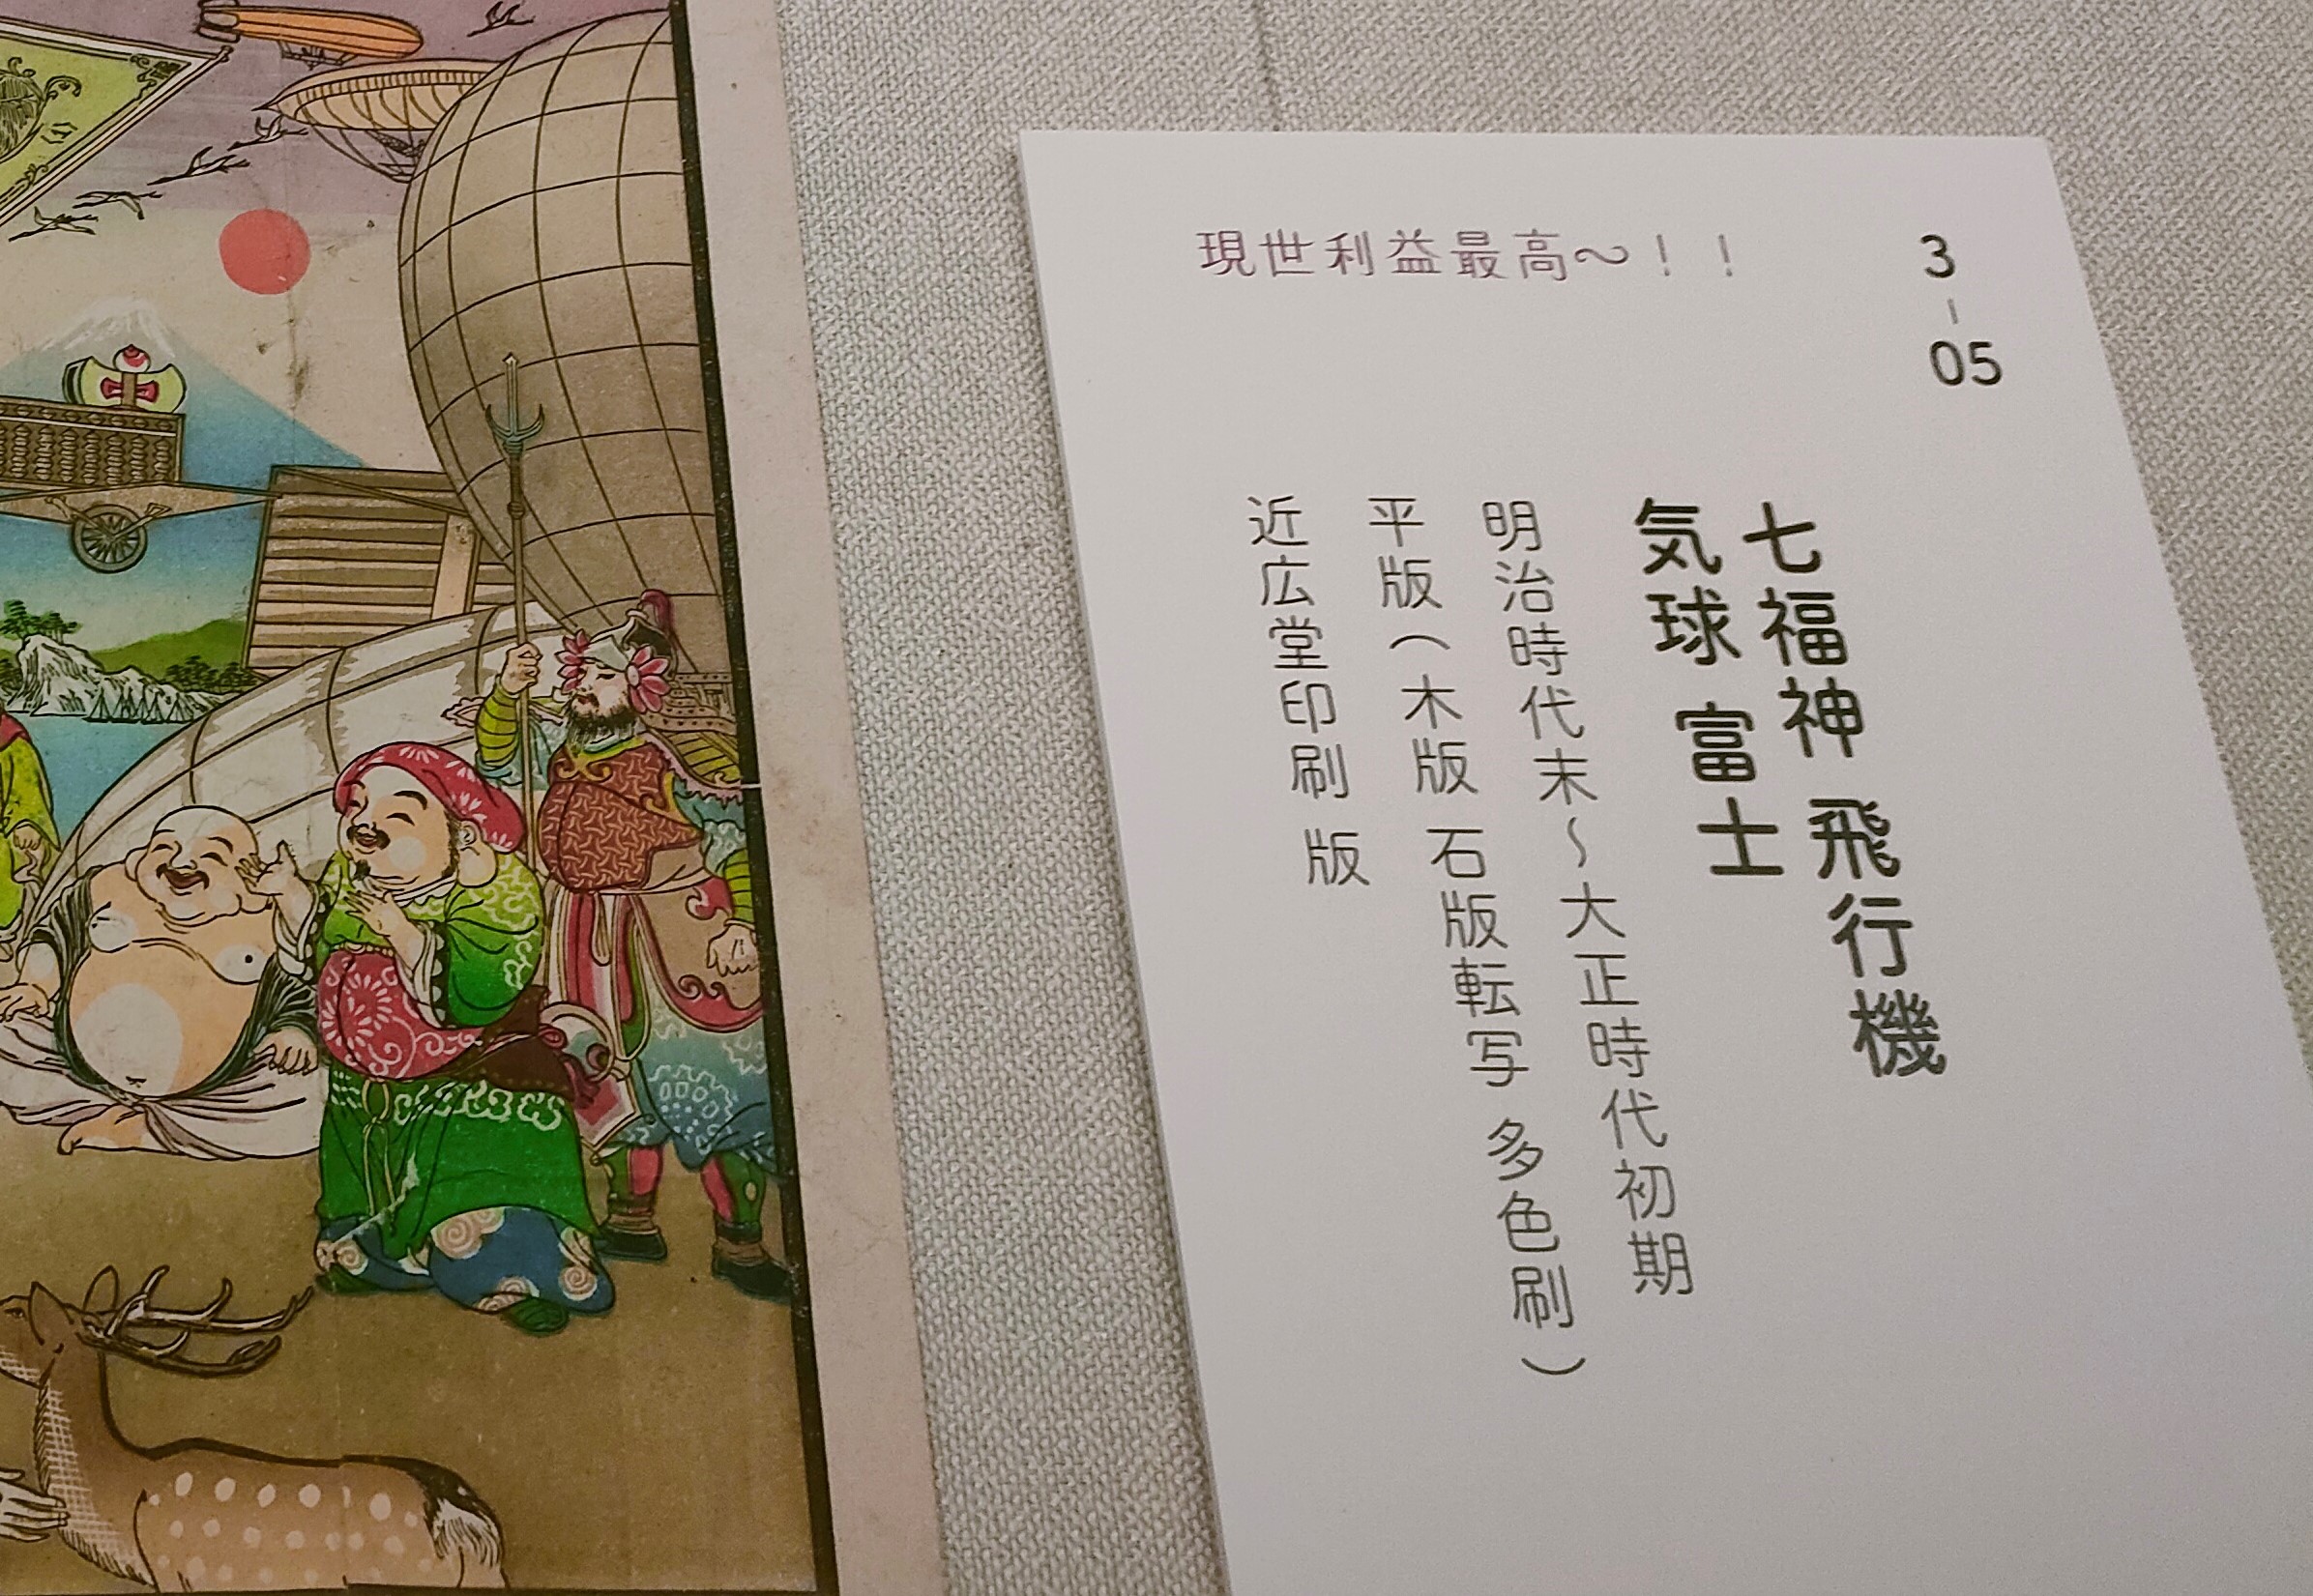 3-05
現世利益最高～！！
七福神 飛行機
気球 富士
明治時代末～大正時代初期
平版（木版 石版転写 多色刷）
近広堂印刷 版